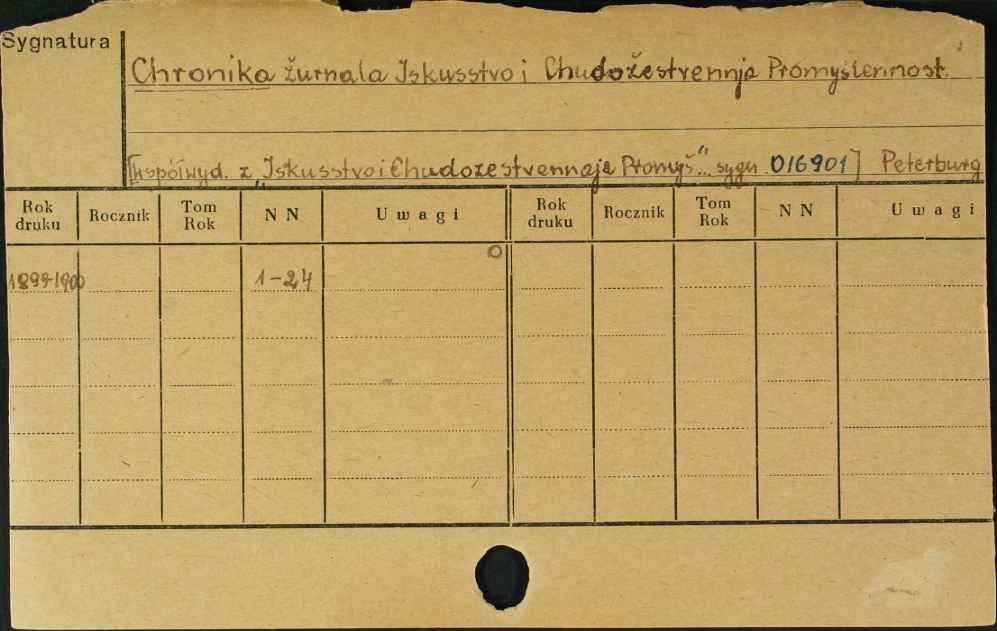 Sygnatura
Chronika žurnala Iskusstvo i Chudožestvennja Promyšlennost'
[Współwyd. z „Iskusstvo i Chudožestvennaja Promyš..." sygn 016901] Peterburg
Rok druku Rocznik Tom Rok NN Uwagi Rok druku Rocznik Tom Rok NN Uwagi
1899-1900 1-24